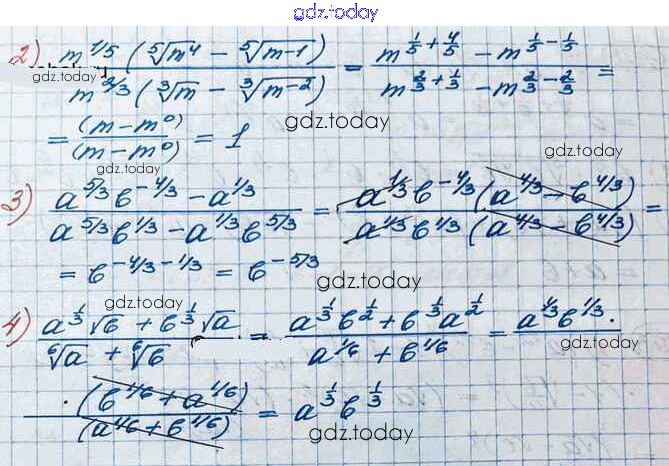 gdz.today
2) m^{1/5} (\sqrt[5]{m^4} - \sqrt[5]{m-1}) / m^{2/3} (\sqrt[3]{m} - \sqrt[3]{m-2}) = m^{1/5 + 4/5} - m^{1/5 - 1/5} / m^{2/3 + 1/3} - m^{2/3 - 2/3} =
gdz.today
gdz.today
= (m - m^0) / (m - m^0) = 1
gdz.today
gdz.today
3) a^{5/3} b^{-4/3} - a^{1/3} / a^{5/3} b^{1/3} - a^{1/3} b^{5/3} = a^{1/3} b^{-4/3} (a^{4/3} - b^{4/3}) / a^{1/3} b^{1/3} (a^{4/3} - b^{4/3}) =
gdz.today
= b^{-4/3 - 1/3} = b^{-5/3}
gdz.today
4) a^{1/3} \sqrt{b} + b^{1/3} \sqrt{a} / \sqrt[6]{a} + \sqrt[6]{b} = a^{1/3} b^{1/2} + b^{1/3} a^{1/2} / a^{1/6} + b^{1/6} = a^{1/3} b^{1/3} ·
gdz.today
· (b^{1/6} + a^{1/6}) / (a^{1/6} + b^{1/6}) = a^{1/3} b^{1/3}
gdz.today
gdz.today